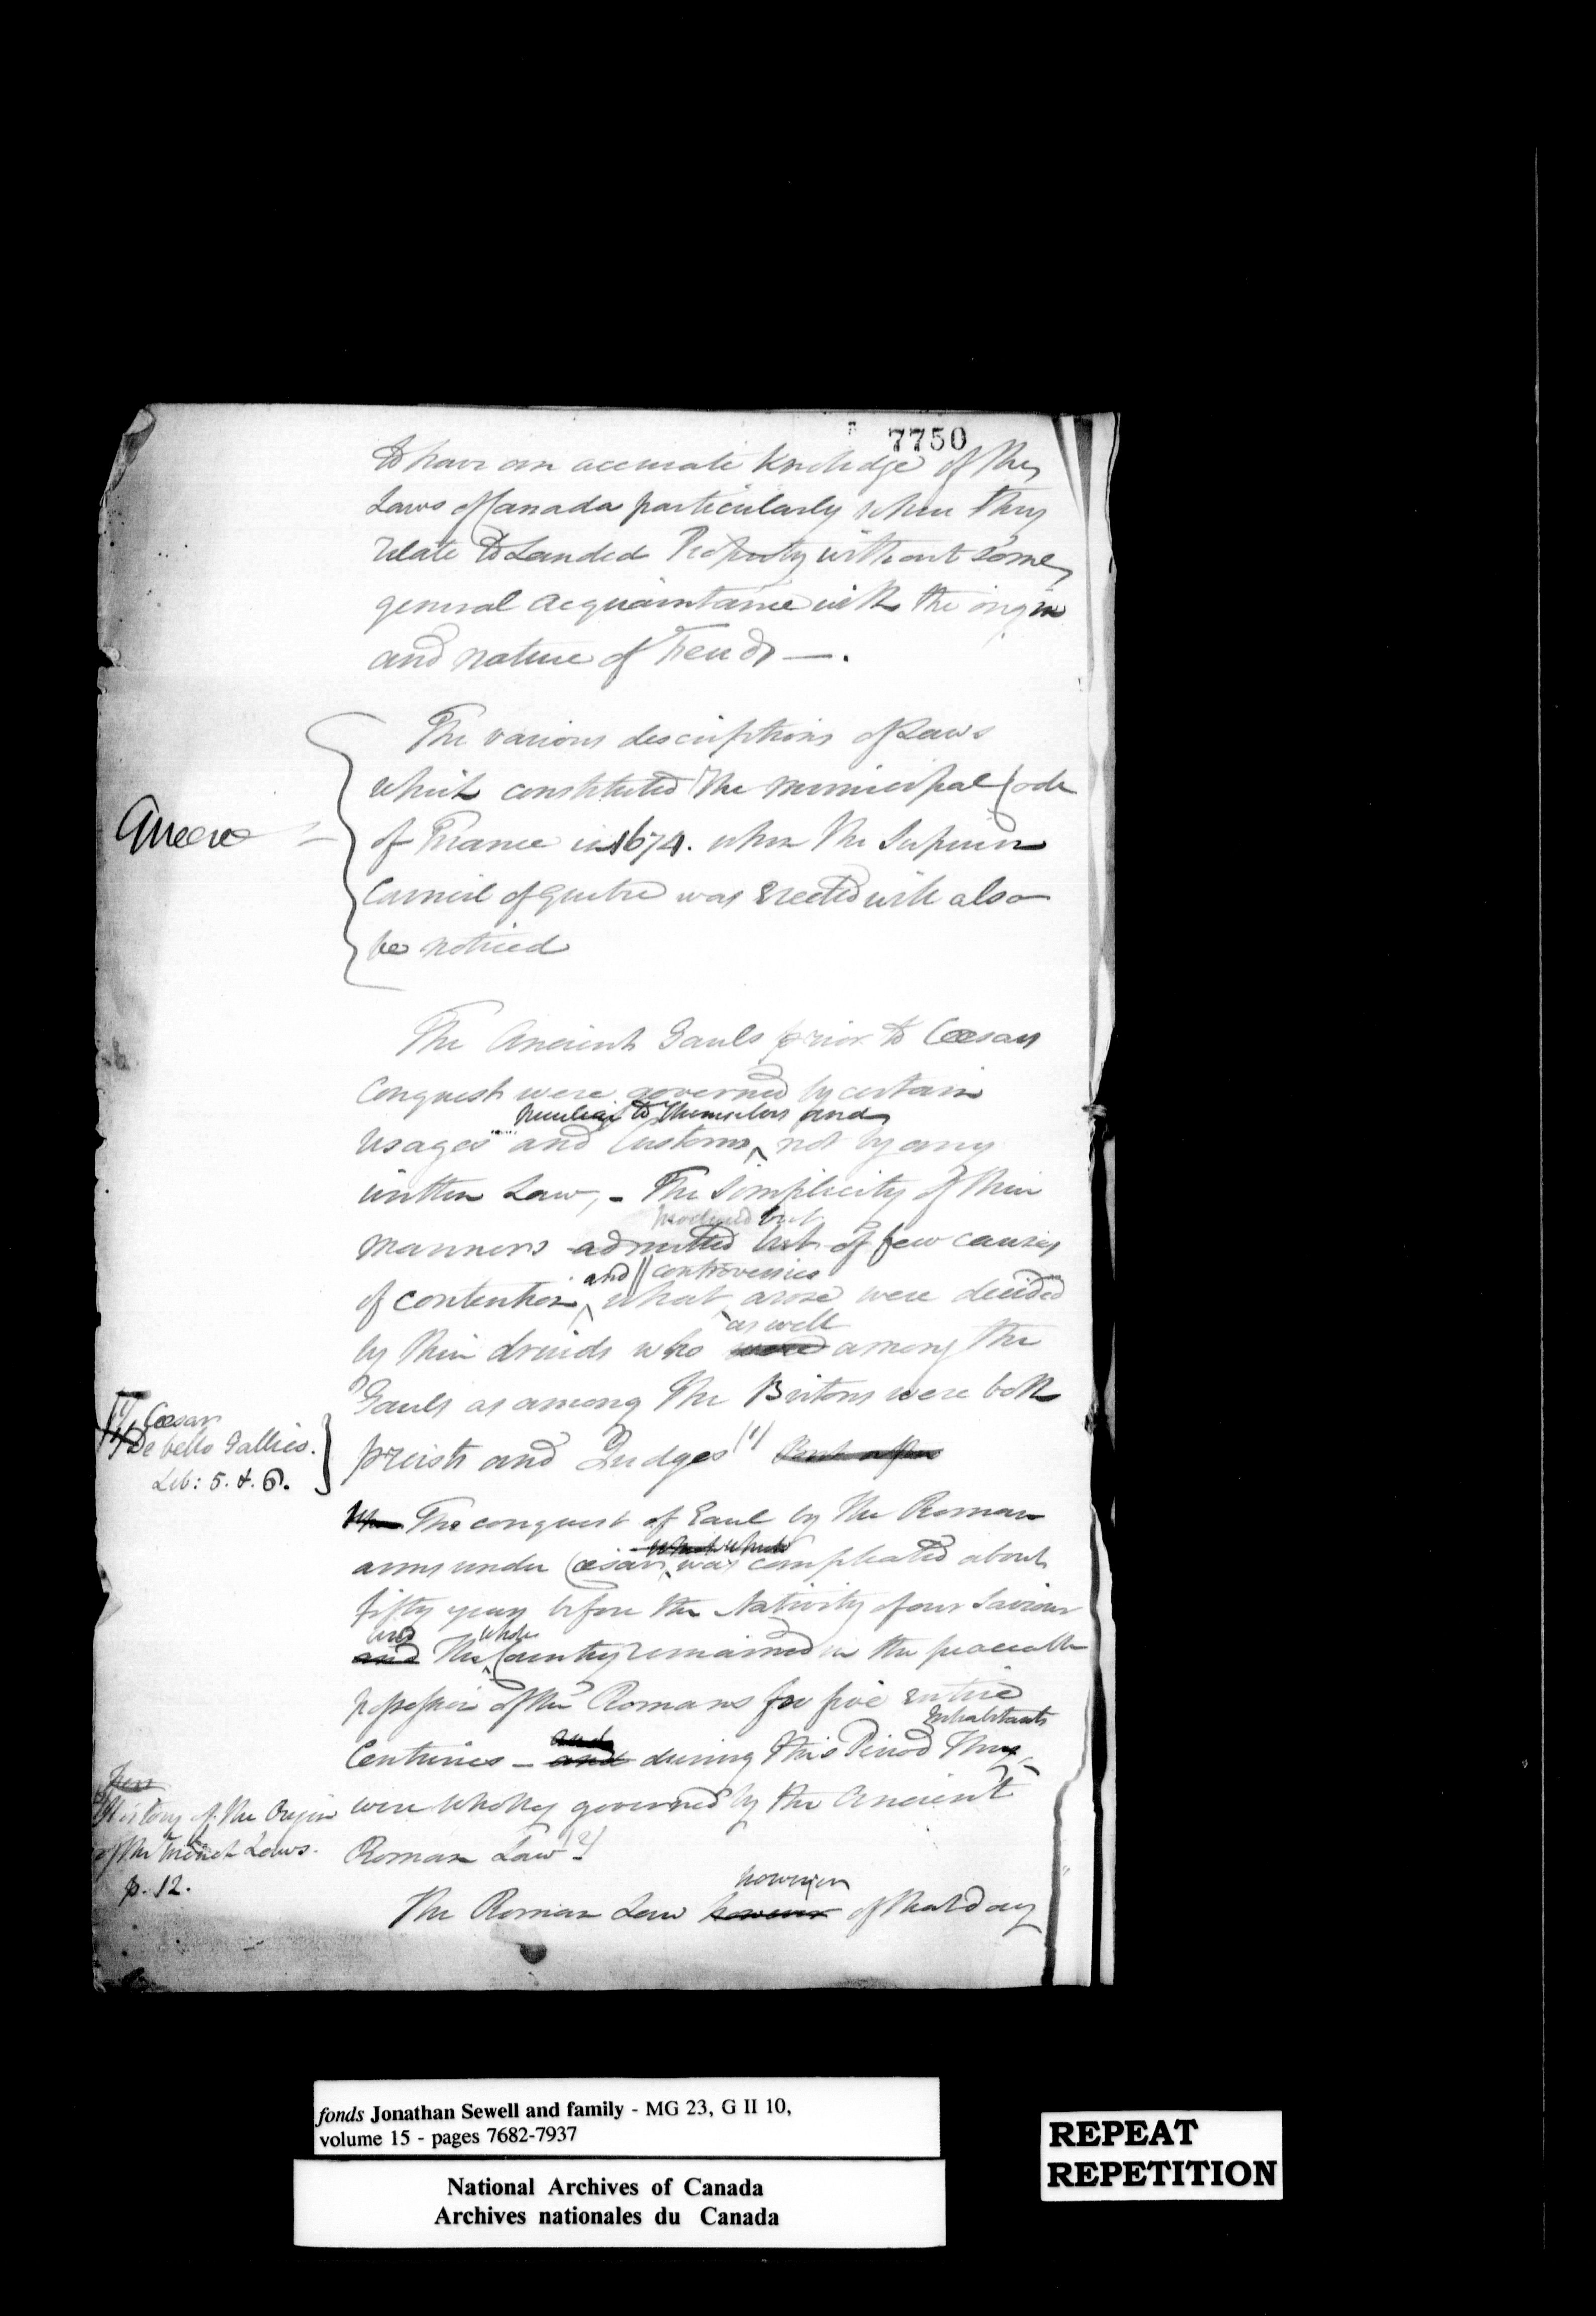 7750
to have an accurate knoledge of the
Laws of Canada particularly when they
relate to Landed Property without some
general acquaintance with the origin
and nature of Feuds —.
The various descriptions of Laws
which constituted the municipal Code
of France in 1674. when the Superior
Council of Quebec was Erected will also
be noticed
Quere
The Ancient Gauls prior to Cæsars
Conquest were governed by certain
peculiar to themselves and
usages and Customs not by any
written Law, - The Simplicity of their
produced but
manners admitted but of few causes
and controversies
of contention what arose were decided
as well
by their druids who were among the
Gauls as among the Britons were both
preists and Judges (1)
Cæsar
De bello Gallico.
Lib: 5. & 6.
Upon The conquest of Gaul by the Roman
arms under Cæsar was compleated about
fifty years before the Nativity of our Saviour
and whole
and The Country remained in the peaceable
possession of the Romans for five entire
Inhabitants
Centuries — and during this Period They
were wholly governed by the Ancient
Roman Law (2)
History of the Origin
of the French Laws.
p. 12.
however
The Roman Law however of that day
fonds Jonathan Sewell and family - MG 23, G II 10,
volume 15 - pages 7682-7937
National Archives of Canada
Archives nationales du Canada
REPEAT
REPETITION